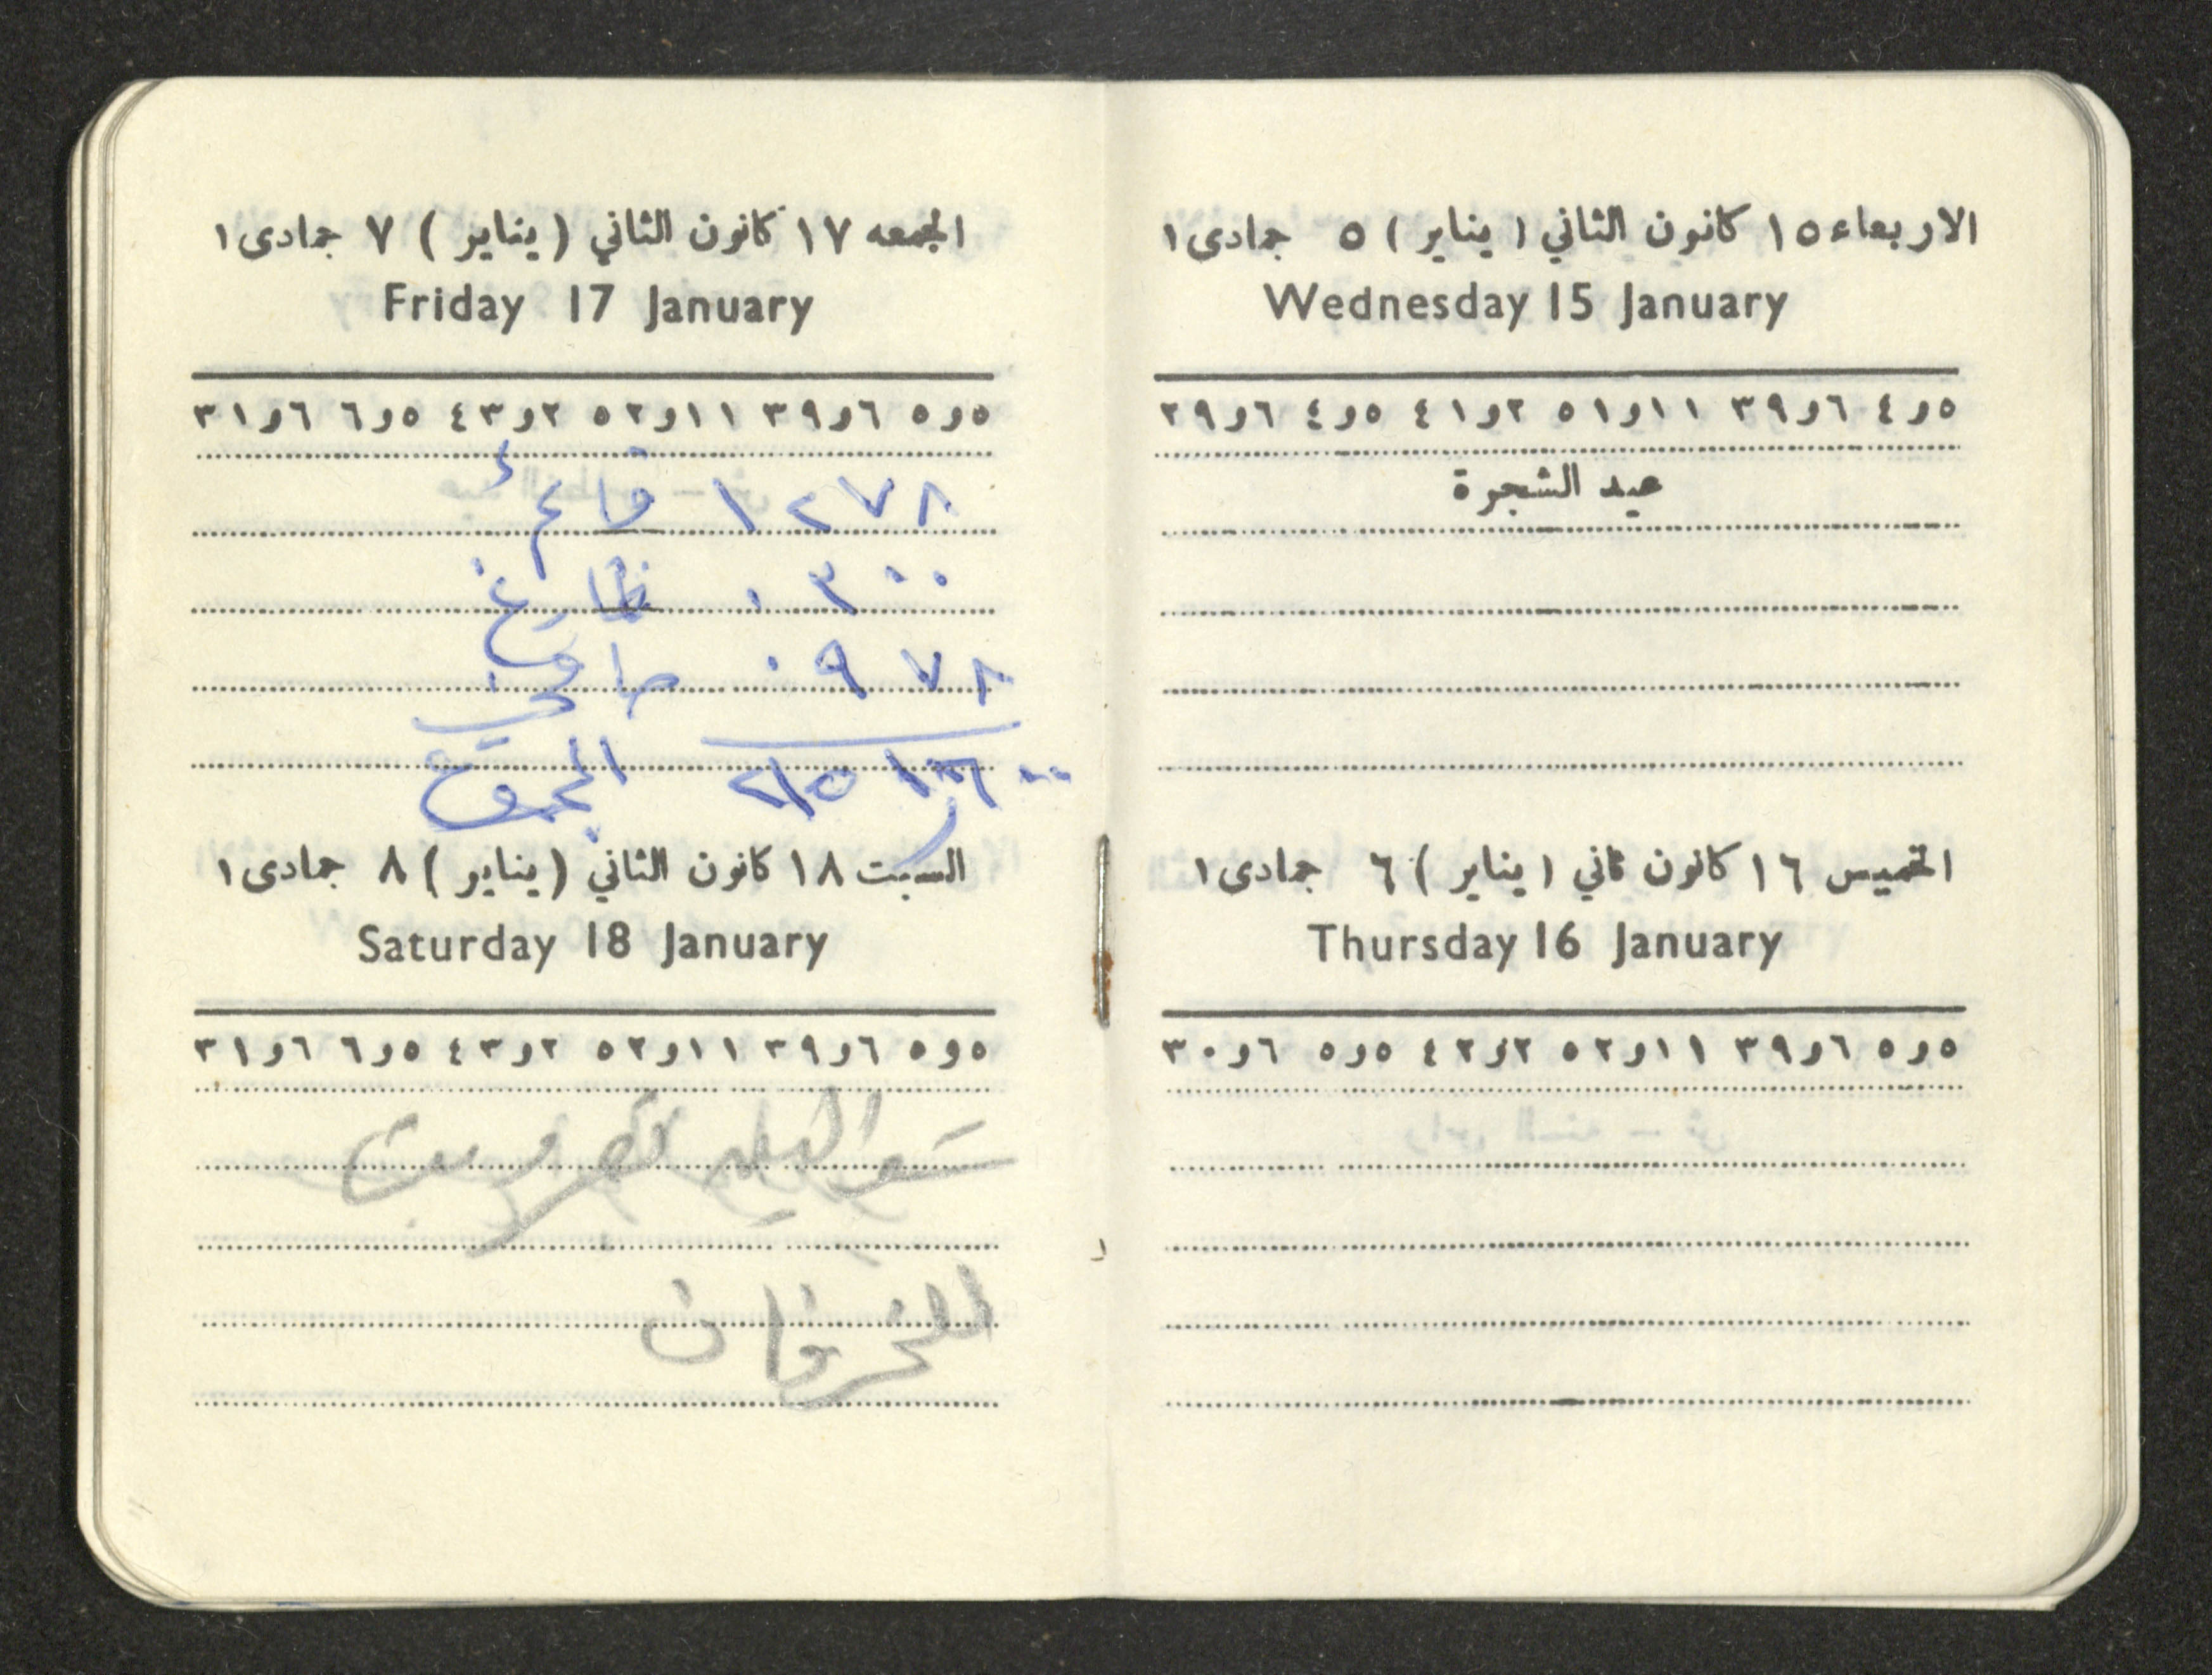 الاربعاء ١٥ كانون الثاني ( يناير ) ٥ جمادى ١
Wednesday 15 January
٥و٤ ٦و٣٩ ١١و٥١ ٢و٤١ ٥و٤ ٦و٢٩
عيد الشجرة
الخميس ١٦ كانون ثاني ( يناير ) ٦ جمادى ١
Thursday 16 January
٥و٥ ٦و٣٩ ١١و٥٢ ٢و٤٢ ٥و٥ ٦و٣٠
الجمعه ١٧ كانون الثاني ( يناير ) ٧ جمادى ١
Friday 17 January
٥و٥ ٦و٣٩ ١١و٥٢ ٢و٤٣ ٥و٦ ٦و٣١
١٢٧٨ قائم
٠٣٠٠ فارغ
٠٩٧٨ صافي
المجموع
السبت ١٨ كانون الثاني ( يناير ) ٨ جمادى ١
Saturday 18 January
٥و٥ ٦و٣٩ ١١و٥٢ ٢و٤٣ ٥و٦ ٦و٣١